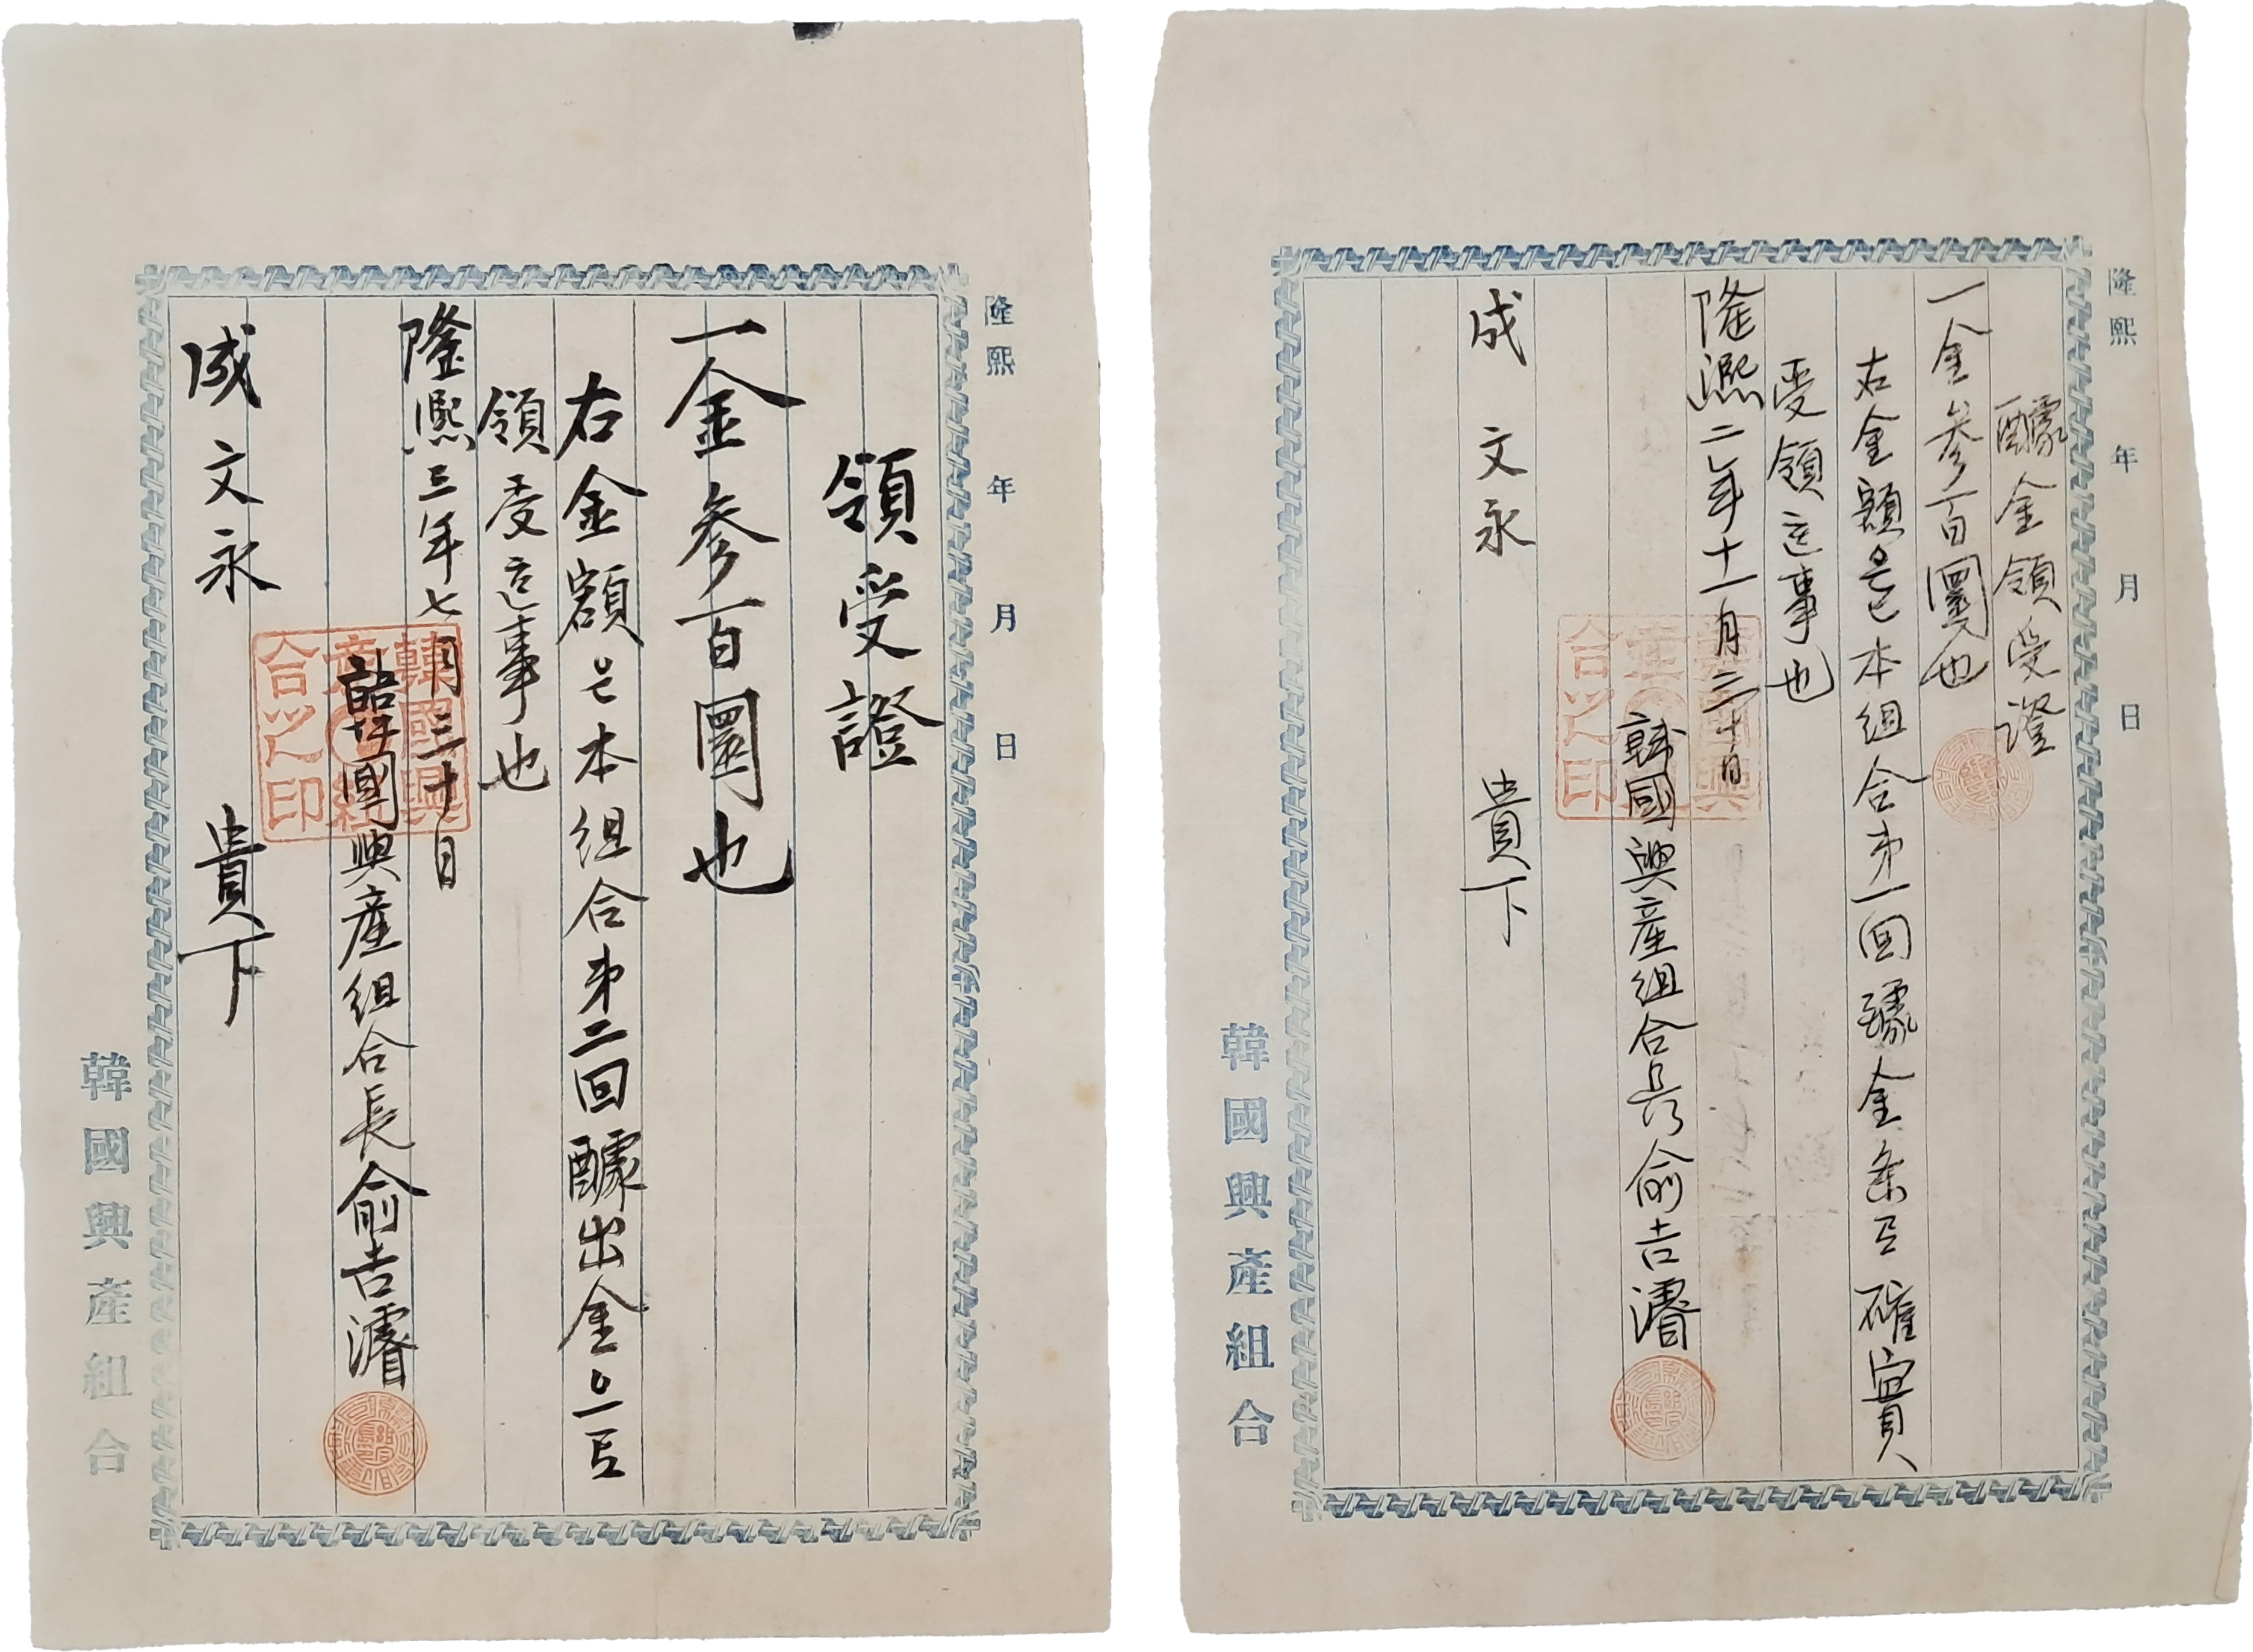 隆熙 年 月 日
醵金領受證
一金參百圜也
右金額은本組合第一回醵金條로確實
受領홈事也
隆熙二年十一月三十日
韓國興産組合長俞吉濬
成文永 貴下
韓國興產組合
隆熙 年 月 日
領受證
一金參百圜也
右金額은本組合第二回醵出金으로
領受홈事也
隆熙三年七月三十日
韓國興産組合長俞吉濬
韓國興産組合之印
成文永 貴下
韓國興產組合